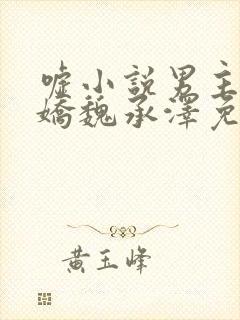 嘘小說男主
嬌魏承澤免
黃玉峰